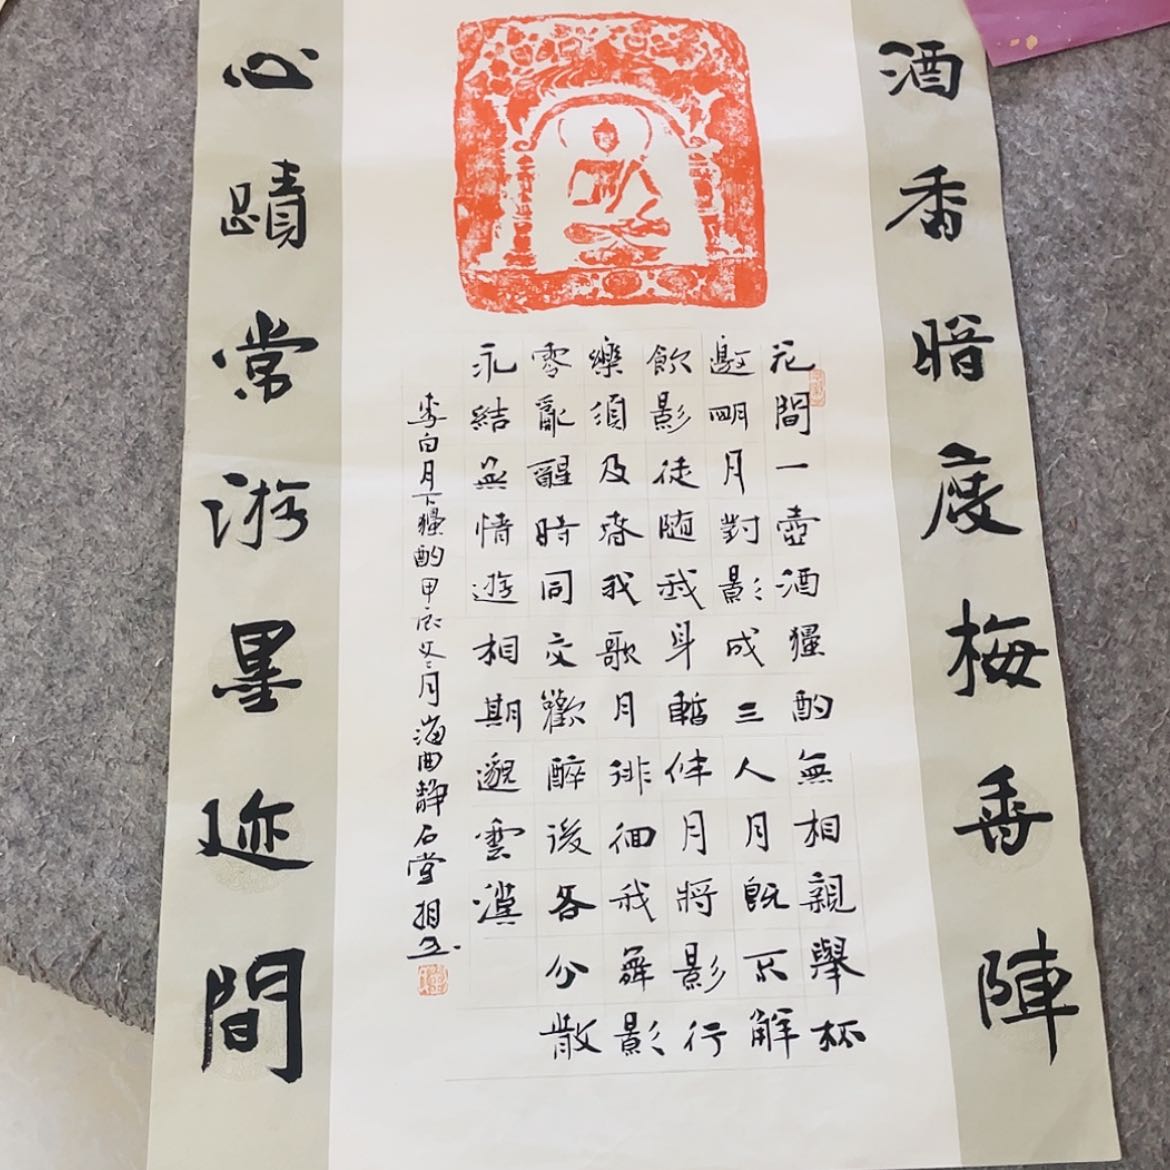 酒香暗度梅香陣
花間一壺酒獨酌無相親舉杯
邀明月對影成三人月既不解
飲影徒随我身暫伴月將影行
樂須及春我歌月徘徊我舞影
零亂醒時同交歡醉後各分散
永結無情遊相期邈雲漢
李白月下獨酌甲辰冬月海曲靜石堂
心蹟常游墨迹間